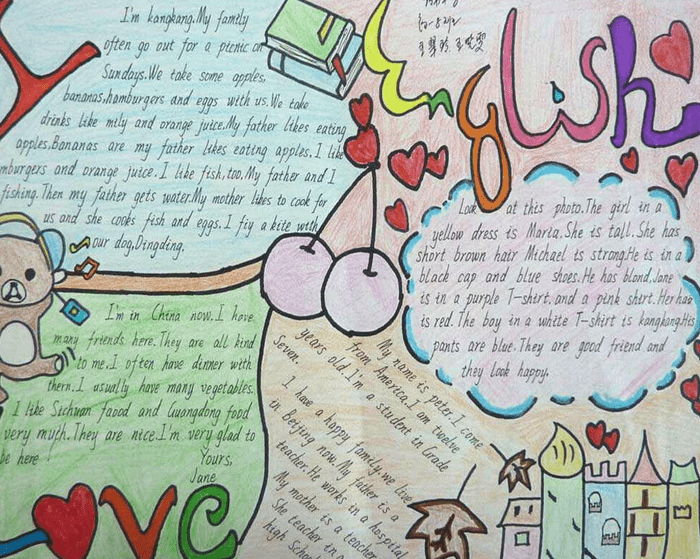 English
I'm kangkang.My family
often go out for a picnic on
Sundays.We take some apples,
bananas,hamburgers and eggs with us.We take
drinks like mily and orange juice.My father likes eating
apples.Bananas are my father likes eating apples.I like
mburgers and orange juice. I like fish,too.My father and I
fishing. Then my father gets water.My mother likes to cook for
us and she cooks fish and eggs. I fiy a kite with
our dog,Dingding.
Look at this photo.The girl in a
yellow dress is Maria.She is tall. She has
short brown hair Michael is strong.He is in a
black cap and blue shoes.He has blond.Jane
is in a purple T-shirt. and a pink shirt.Her hair
is red. The boy in a white T-shirt is kangkang.His
pants are blue. They are good friend and
they look happy.
I'm in China now. I have
many friends here. They are all kind
to me. I often have dinner with
them. I usually have many vegetables.
I like Sichuan faood and Guangdong food
very myth. They are nice.I'm very glad to
be here
Yours,
Jane
My name is peter. I come
from America. I am twelve
years old. I'm a student in Grade
Seven.
I have a happy family. we live
in Beijing now. My father is a
teacher. He works in a hospital
My mother is a teacher
She teacher in a
high School
OVE